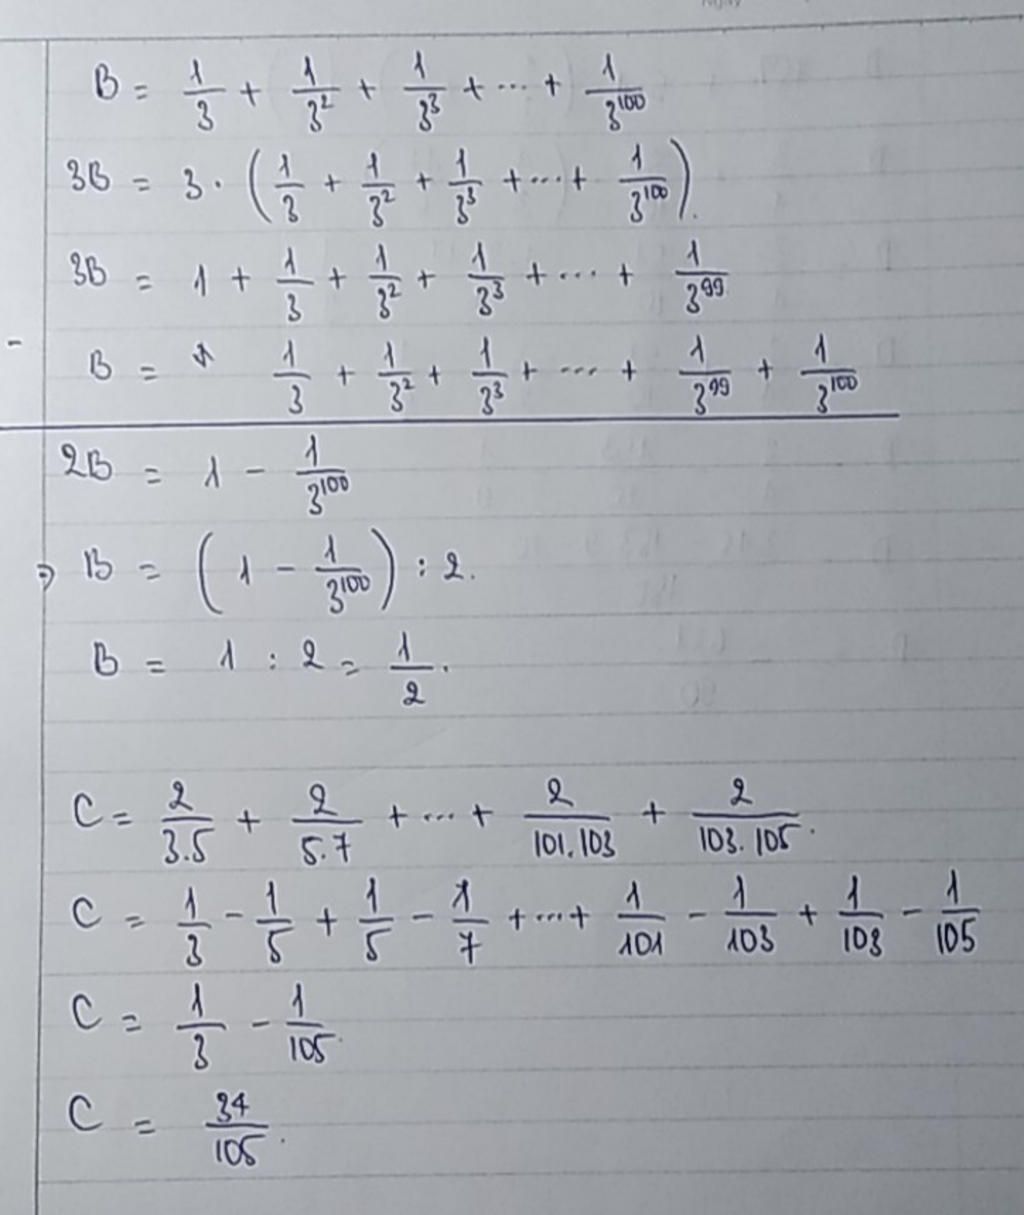 B = 1/3 + 1/3² + 1/3³ + ... + 1/3¹⁰⁰
3B = 3 . (1/3 + 1/3² + 1/3³ + ... + 1/3¹⁰⁰).
3B = 1 + 1/3 + 1/3² + 1/3³ + ... + 1/3⁹⁹
- B = 1/3 + 1/3² + 1/3³ + ... + 1/3⁹⁹ + 1/3¹⁰⁰
2B = 1 - 1/3¹⁰⁰
⇒ B = (1 - 1/3¹⁰⁰) : 2.
B = 1 : 2 = 1/2.
C = 2/3.5 + 2/5.7 + ... + 2/101.103 + 2/103.105.
C = 1/3 - 1/5 + 1/5 - 1/7 + ... + 1/101 - 1/103 + 1/103 - 1/105
C = 1/3 - 1/105.
C = 34/105.